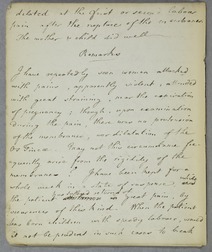 dilated at the first or second labour
pain after the rupture of the membranes.
The mother & child did well.
Remarks
I have repeatedly seen women attacked
with pains, apparently violent, attended
with great straining, near the expiration
of pregnancy; though, upon examination
during the pain, there was no protrusion
of the membranes, nor dilatation of the
Os Tincæ. May not this circumstance fre-
quently arise from the rigidity of the
membranes? I have been kept for a
whole week in a state of suspense,
the patient in great pain, by
uneasiness of this kind. When the patient
has born children with speedy labours, would
it not be prudent in such cases to break